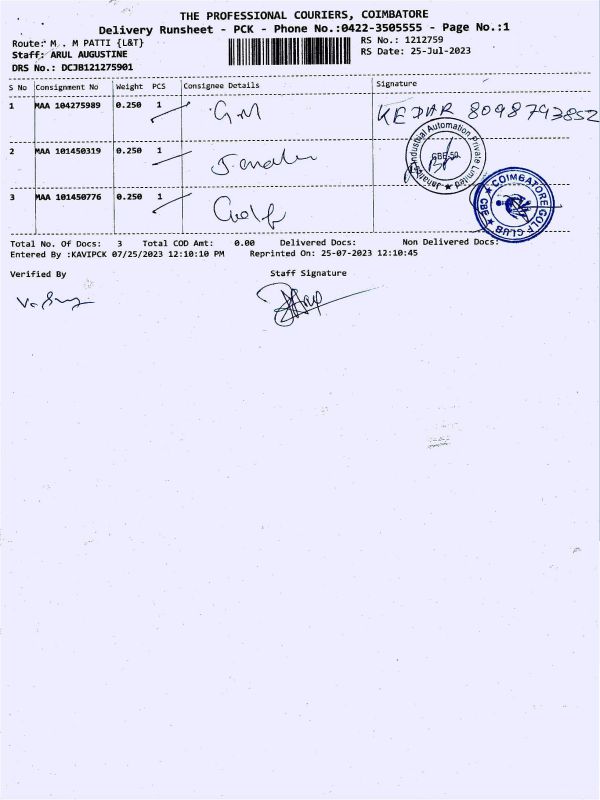 THE PROFESSIONAL COURIERS, COIMBATORE
Delivery Runsheet - PCK - Phone No.:0422-3505555 - Page No.:1
Route: M . M PATTI {L&T}
RS No.: 1212759
Staff: ARUL AUGUSTINE
RS Date: 25-Jul-2023
DRS No.: DCJB121275901
S No Consignment No Weight PCS Consignee Details Signature
1 MAA 104275989 0.250 1 G.M KEDAR 8098793852
2 MAA 101450319 0.250 1
Industrial Automation Private Limited
3 MAA 101450776 0.250 1 Golf
COIMBATORE GOLF CLUB ★ CBE ★
Total No. Of Docs: 3 Total COD Amt: 0.00 Delivered Docs: Non Delivered Docs:
Entered By :KAVIPCK 07/25/2023 12:10:10 PM Reprinted On: 25-07-2023 12:10:45
Verified By Staff Signature